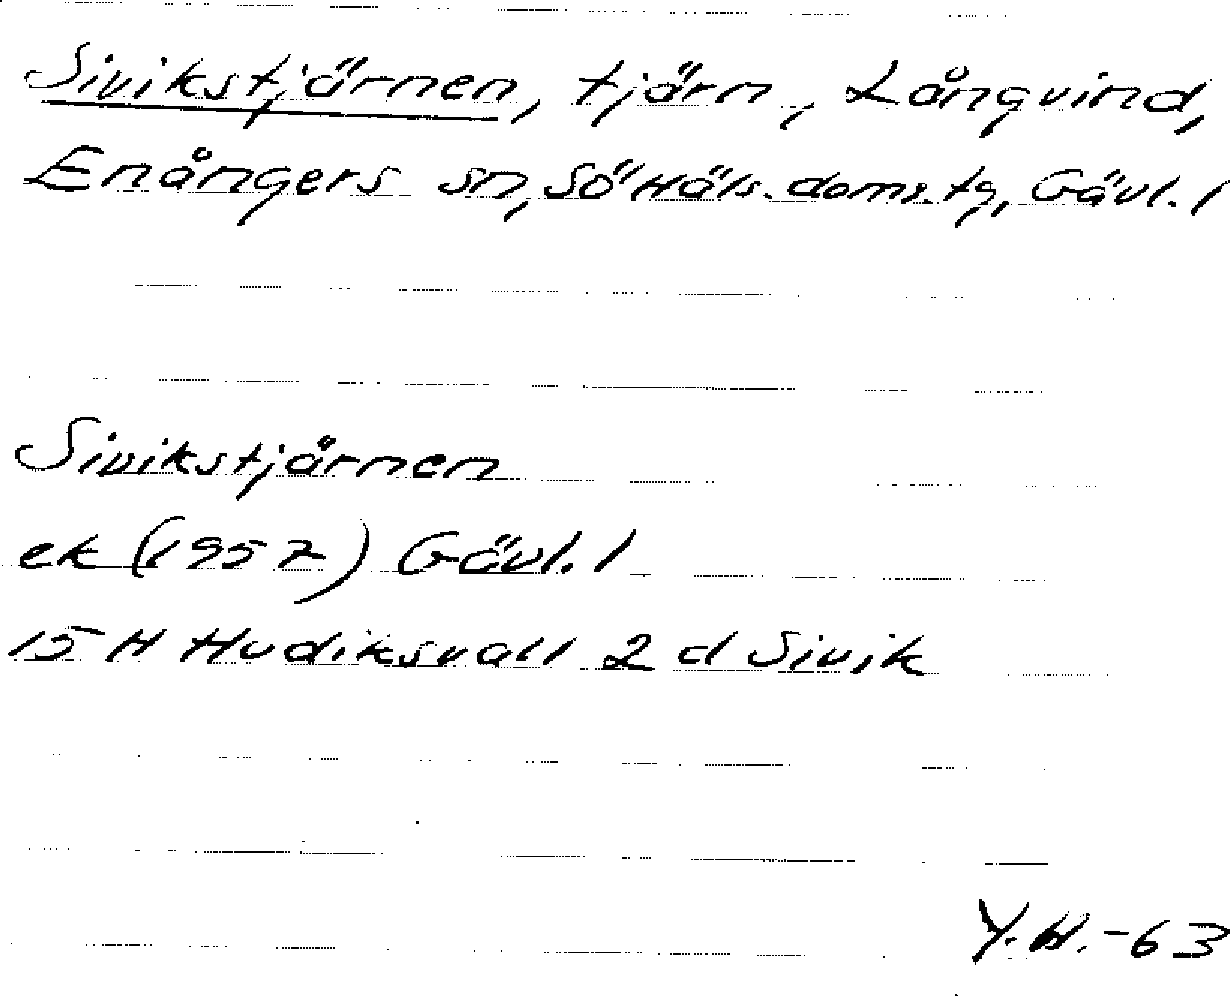 Sivikstjärnen, tjärn, Långvind,
Enångers sn, Sö Häls. doms. tg, Gävl. l
Sivikstjärnen
ek (1957) Gävl. l
15 H Hudiksvall 2 d Sivik
Y. H. -63